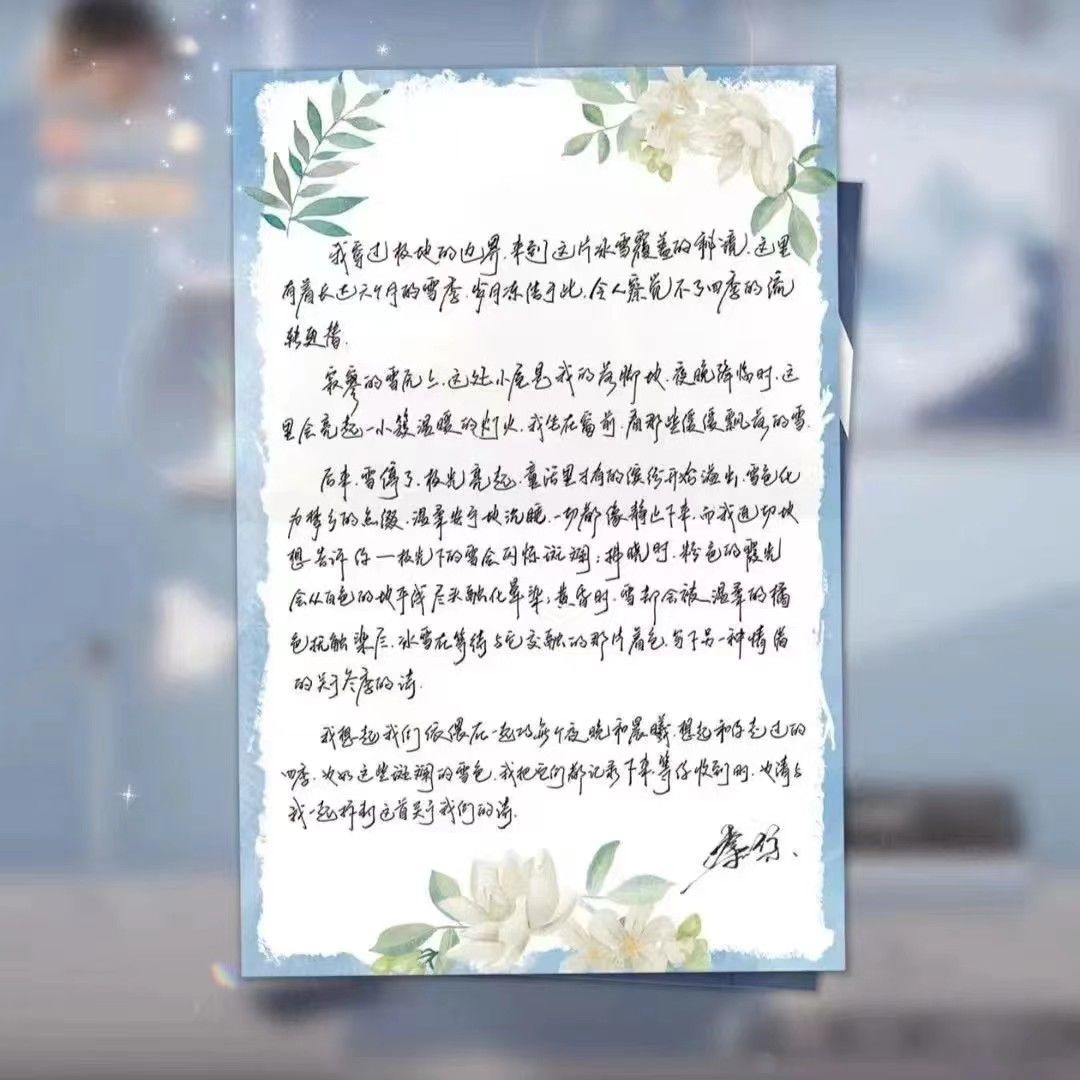 我穿过极地的边界,来到这片冰雪覆盖的秘境,这里
有着长达六个月的雪季,岁月冻结于此,令人察觉不了四季的流
转更替.
寂寥的雪原上,这处小屋是我的落脚地,夜晚降临时,这
里会亮起一小簇温暖的灯火,我坐在窗前,看那些缓缓飘落的雪.
后来,雪停了,极光亮起,童话里才有的缤纷开始溢出,雪色化
为梦乡的点缀,温柔安宁地沉睡,一切都像静止下来,而我迫切地
想告诉你——极光下的雪会闪烁斑斓;拂晓时,粉色的霞光
会从白色的地平线尽头融化晕染;黄昏时,雪却会被温柔的橘
色抚触染尽,冰雪在等待与它交融的那片着色,写下另一种情绪
的关于冬季的诗.
我想起我们依偎在一起的每个夜晚和晨曦,想起和你走过的
四季,次如这些斑斓的雪色,我把它们都记录下来,等你收到时,次请与
我一起拆封这首关于我们的诗.